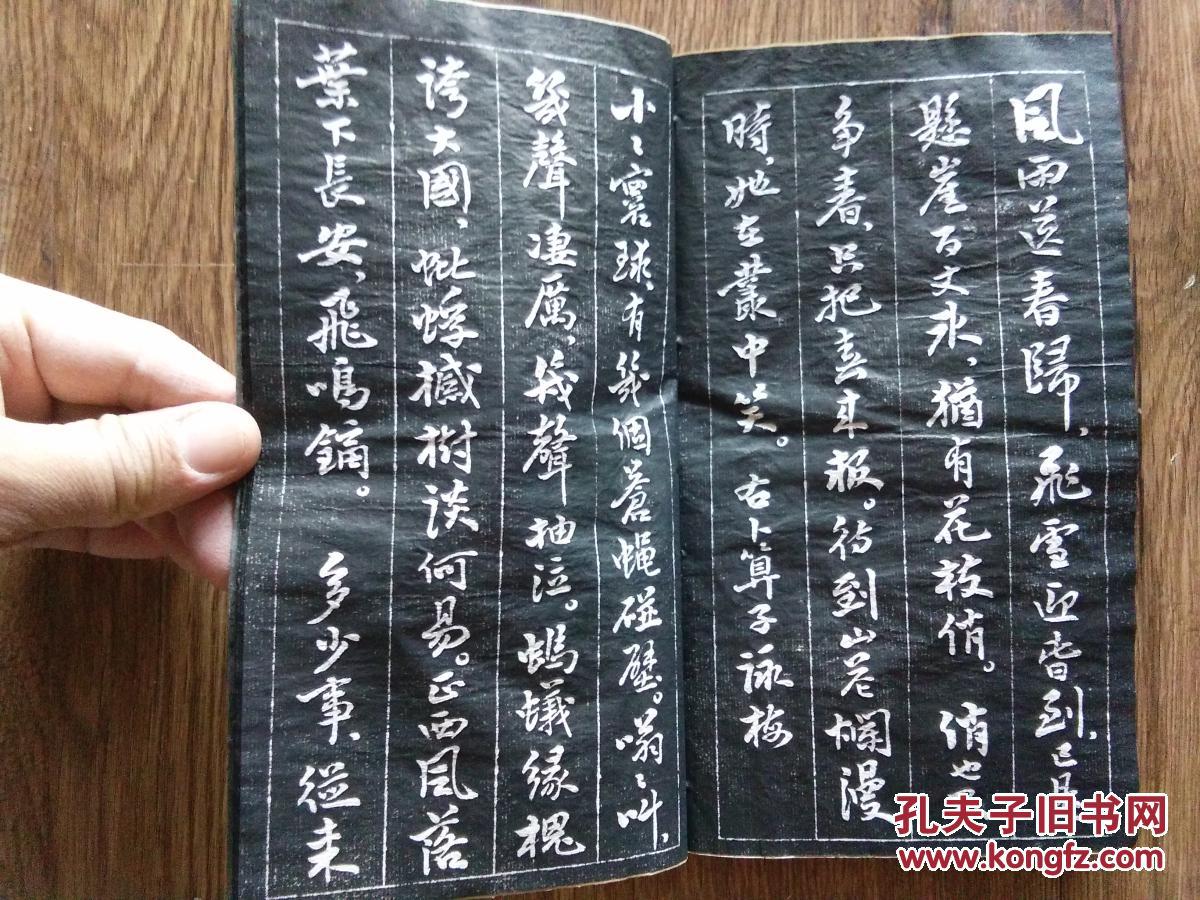 風雨送春歸，飛雪迎旾到，已是
懸崖百丈冰，猶有花枝俏。 俏也不
爭春，只把春來報。待到山花爛漫
時，她在叢中笑。 右卜算子詠梅
小〻寰球，有幾個蒼蠅碰壁。嗡〻叫，
幾聲淒厲，幾聲抽泣。螞蟻緣槐
誇大國，蚍蜉撼樹談何易。正西風落
葉下長安，飛鳴鏑。 多少事，從來
孔夫子旧书网
www.kongfz.com